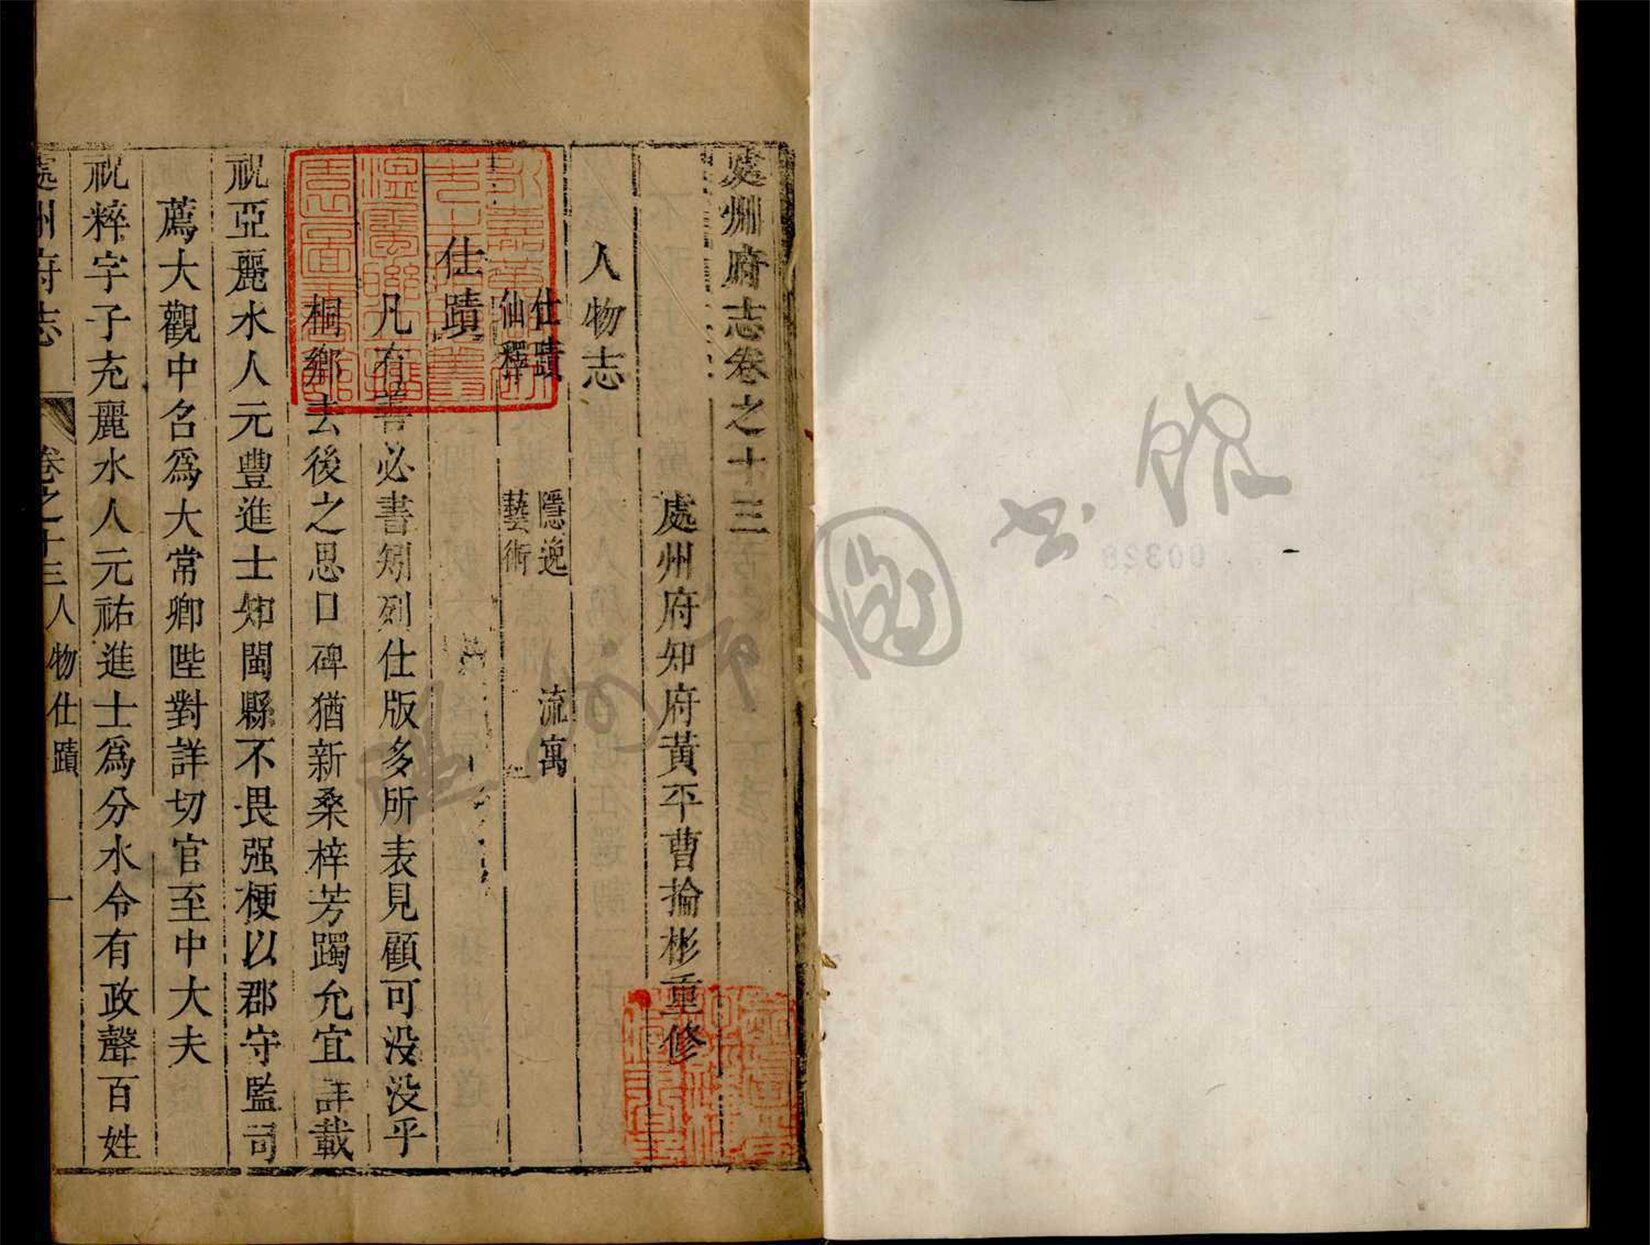 處州府志卷之十三
處州府知府黃平曹掄彬重修
人物志
仕蹟 隱逸 流寓
仙釋 藝術
仕蹟
凡有善必書矧列仕版多所表見顧可没没乎
桐鄉去後之思口碑猶新桑梓芳躅允宜詳載
祝亞麗水人元豐進士知閩縣不畏强梗以郡守監司
薦大觀中名爲大常卿陛對詳切官至中大夫
祝粹字子充麗水人元祐進士爲分水令有政聲百姓
處州府志 卷之十三人物仕蹟 一
圖書館
00328